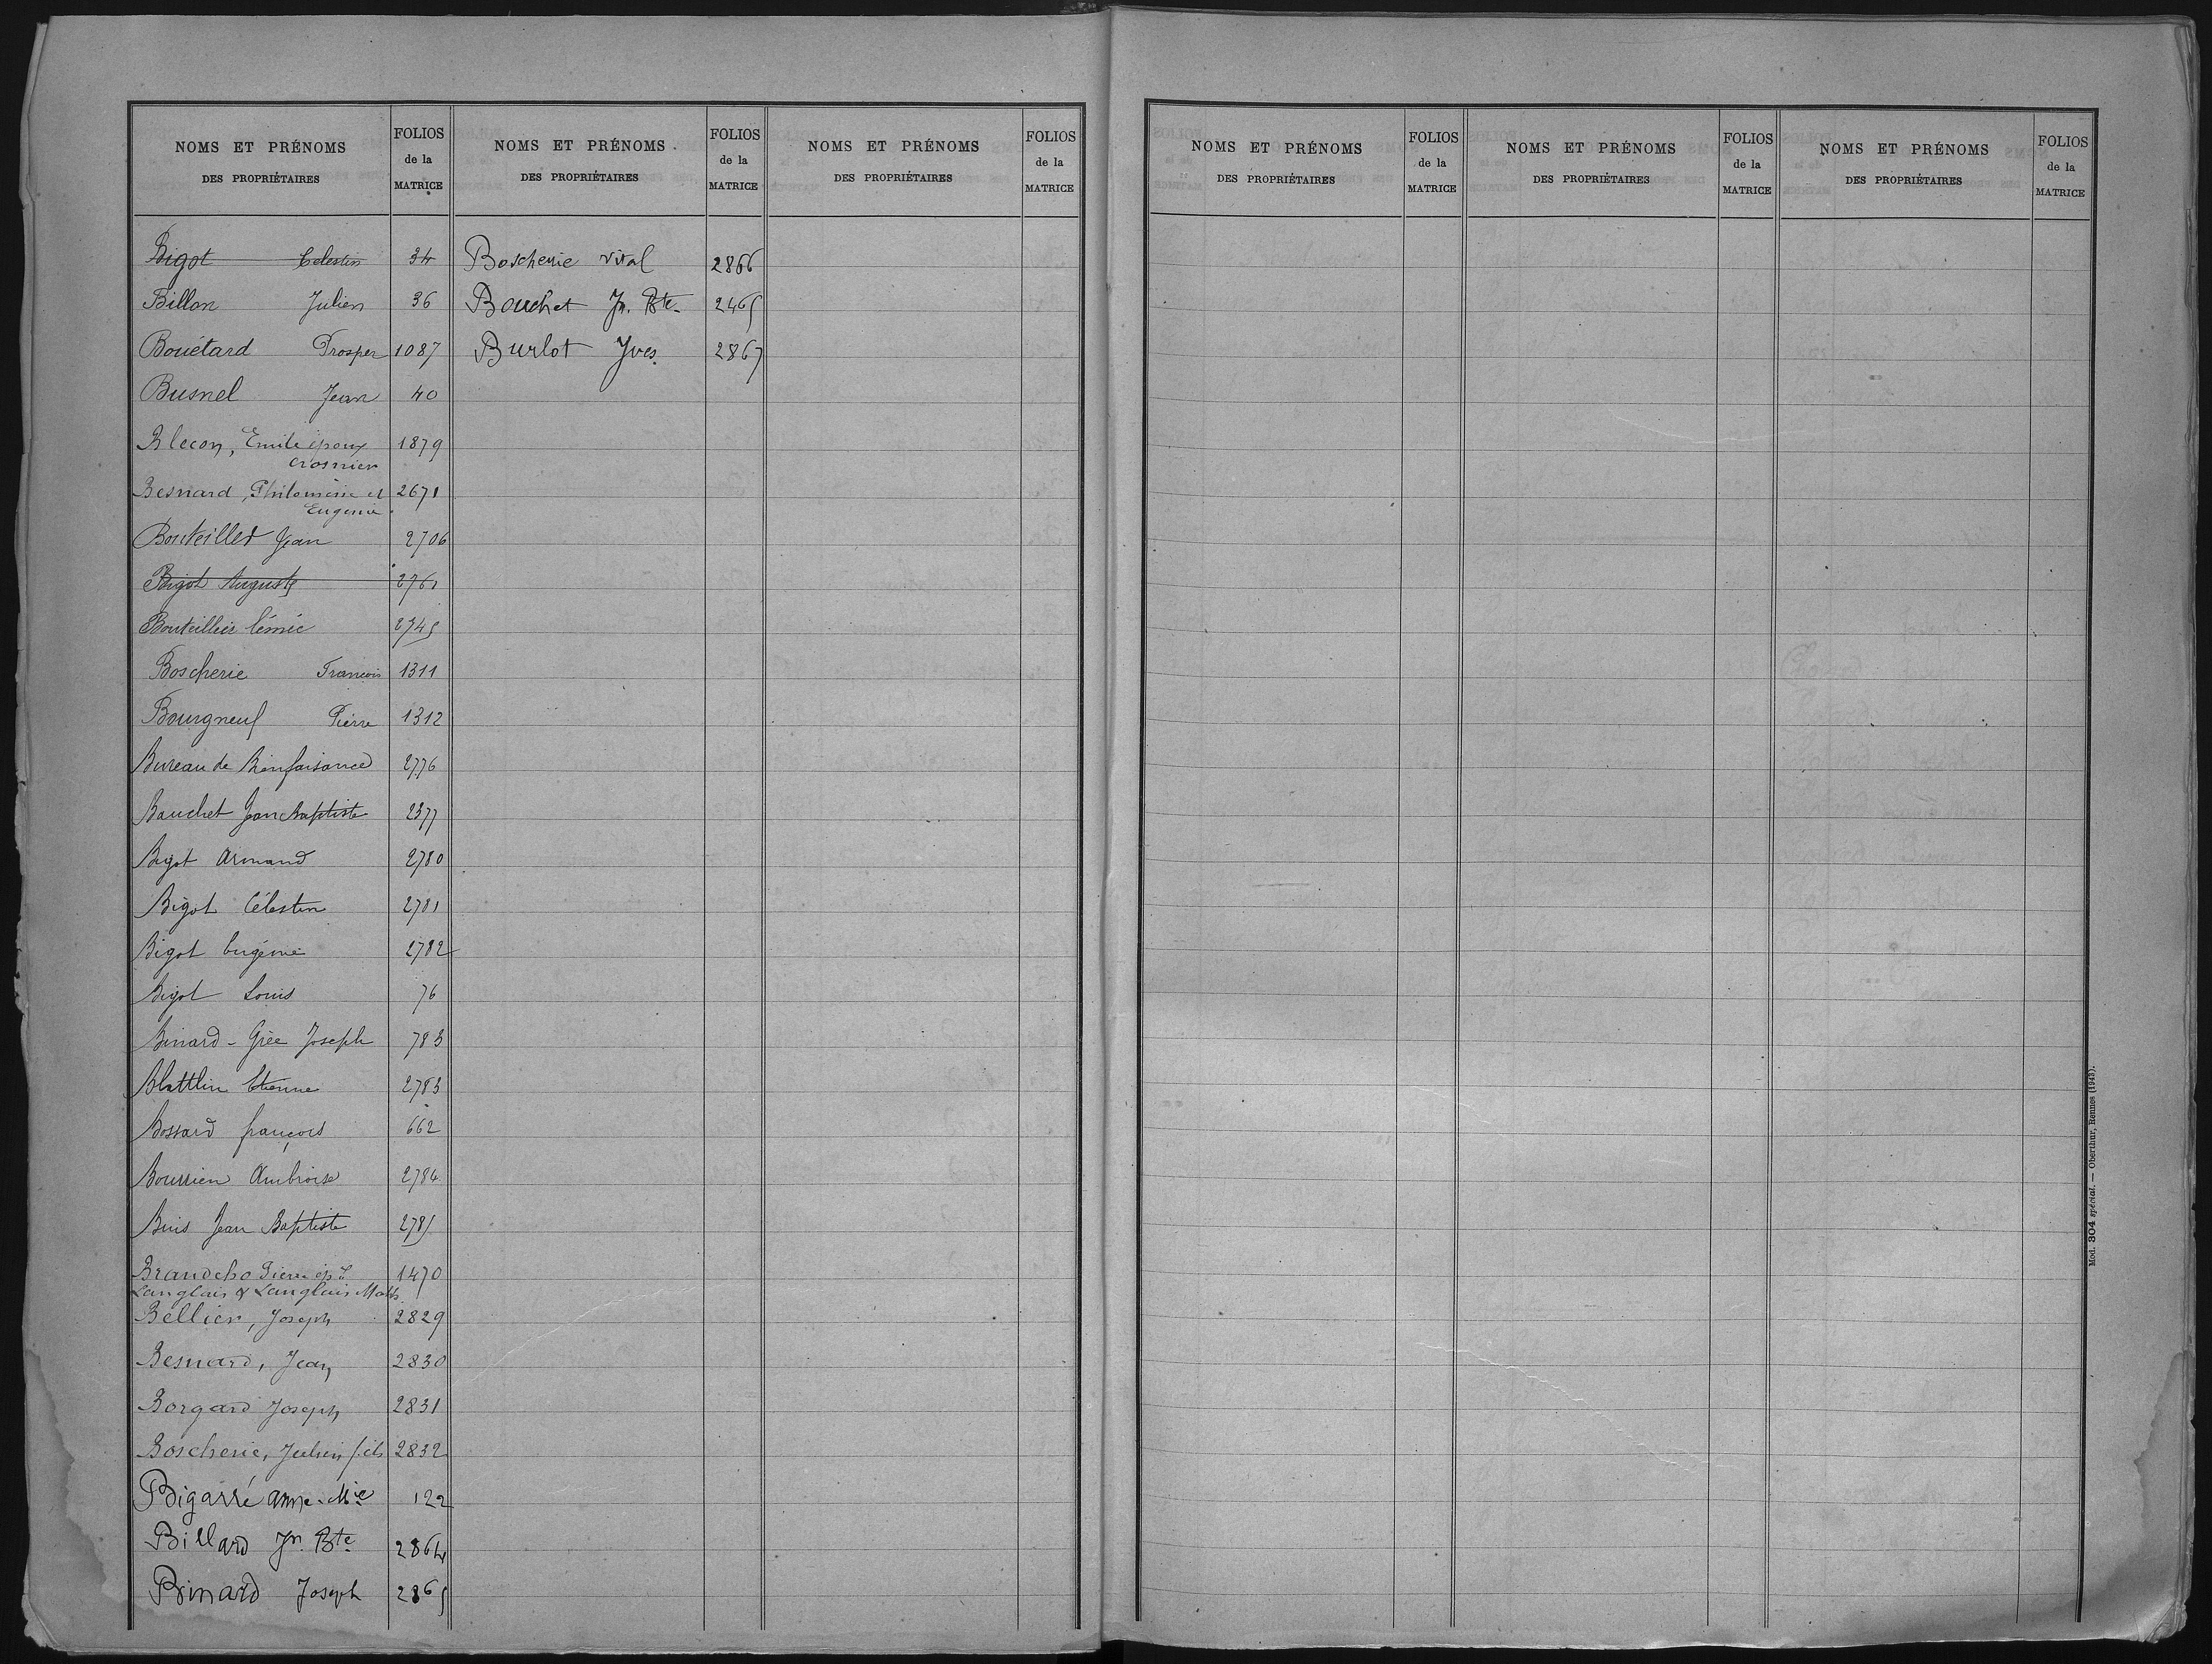 NOMS ET PRÉNOMS
DES PROPRIÉTAIRES
FOLIOS
de la
MATRICE
Bigot Célestin 34
Billon Julien 36
Bouétard Prosper 1087
Busnel Jean 40
Blecon, Emile époux 1879
Crosnier
Besnard, Philomène et 2671
Eugénie
Bouteiller Jean 2706
Bigot Auguste 2761
Bouteiller 2745
Boscherie Francois 1311
Bourgneuf Pierre 1312
Bureau de Bienfaisance 2776
Bauchet Jean Baptiste 2377
Bigot Armand 2780
Bigot Célestin 2781
Bigot Eugénie 2782
Bigot Louis 76
Binard - Grée Joseph 783
Blattlin Etienne 2783
Bossard françois 662
Bourrien Ambroise 2784
Buis Jean Baptiste 2785
Brandcho Pierre ép. 1470
Langlais & Langlais
Bellier, Joseph 2829
Besnard, Jean 2830
Borgard Joseph 2831
Boscherie, Julien fils 2832
Bigarré Anne-Mie 122
Billard Jn. Bte 2864
Binard Joseph 2865
NOMS ET PRÉNOMS
DES PROPRIÉTAIRES
FOLIOS
de la
MATRICE
Boscherie Vital 2866
Bouchet Jn. Bte 2465
Burlot Yves 2867
NOMS ET PRÉNOMS
DES PROPRIÉTAIRES
FOLIOS
de la
MATRICE
NOMS ET PRÉNOMS
DES PROPRIÉTAIRES
FOLIOS
de la
MATRICE
NOMS ET PRÉNOMS
DES PROPRIÉTAIRES
FOLIOS
de la
MATRICE
NOMS ET PRÉNOMS
DES PROPRIÉTAIRES
FOLIOS
de la
MATRICE
Mod. 304 spécial. — Oberthur, Rennes (1943).